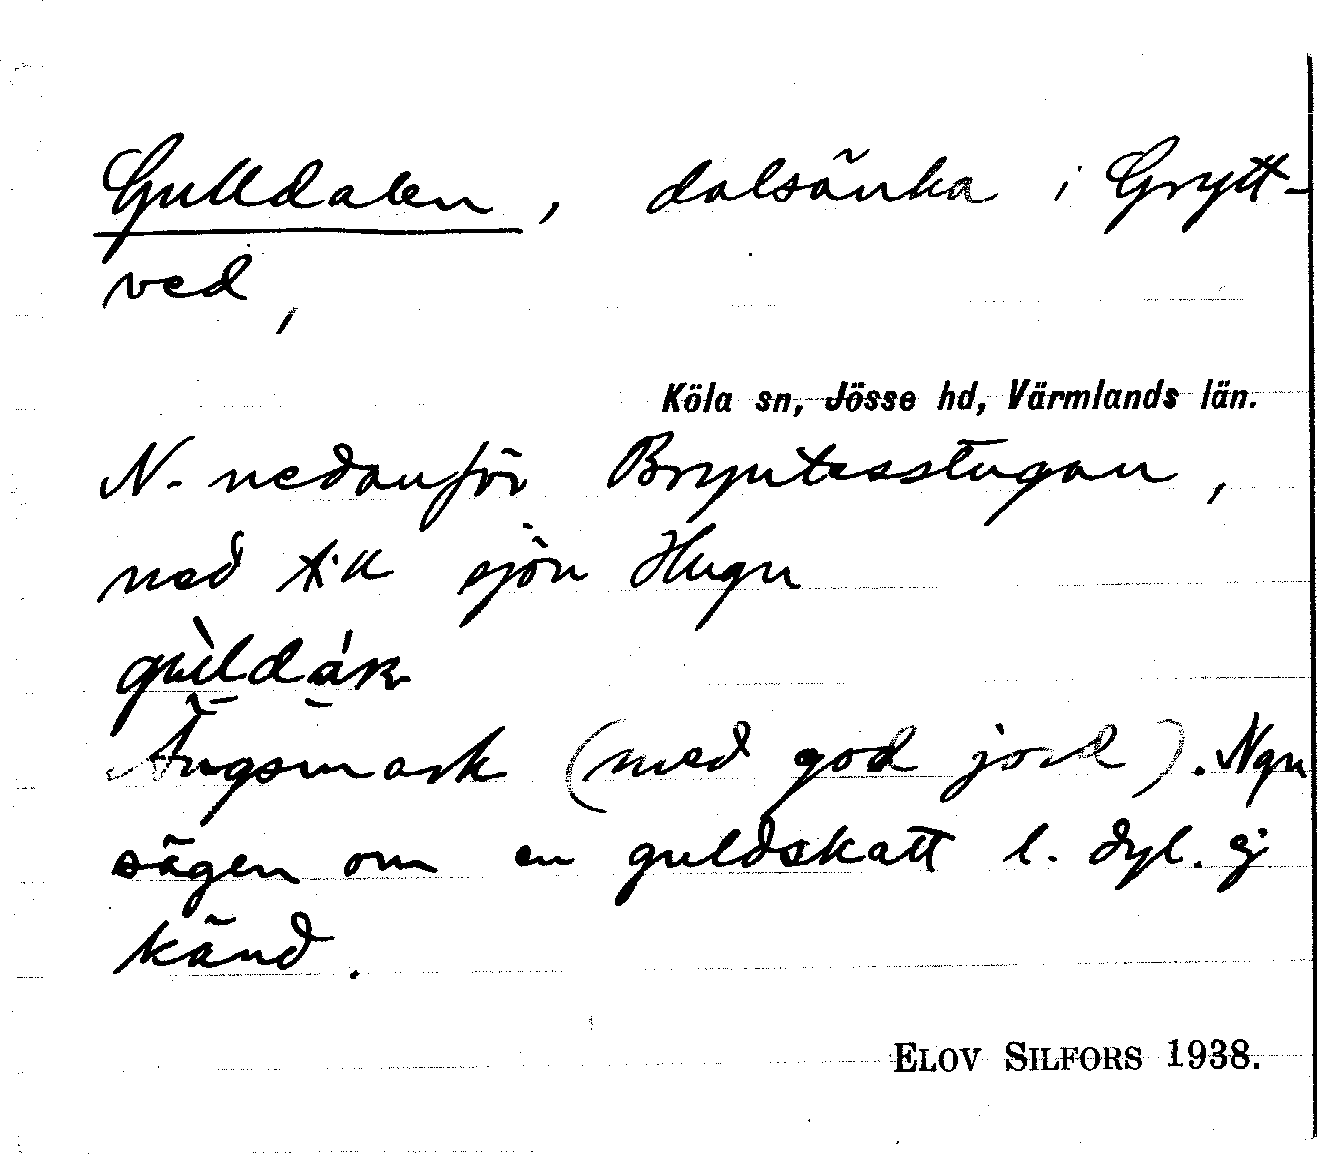 Gulldalen, dalsänka i Grytt-
ved,
Köla sn, Jösse hd, Värmlands län.
N. nedanför Bryntesstugan,
ned till sjön Hugn
Ängsmark (med god jord). Ngn
sägen om en guldskatt l. dyl. ej
känd.
ELOV SILFORS 1938.